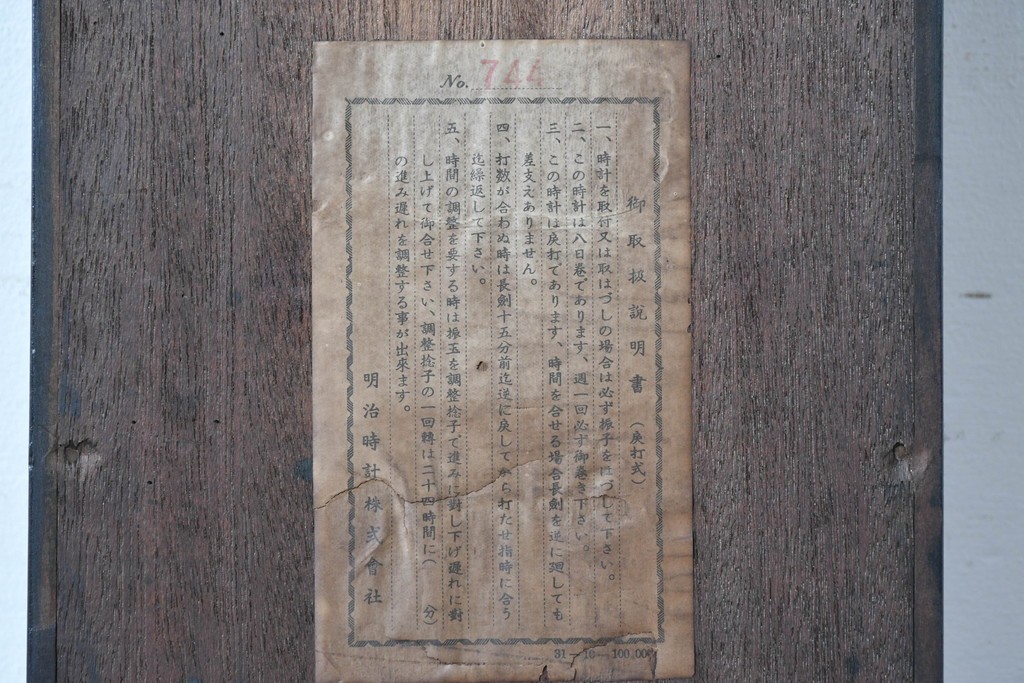 No. 744
御取扱說明書（戾打式）
一、時計を取付又は取はづしの場合は必ず振子をはづして下さい。
二、この時計は八日巻であります、週一回必ず御巻き下さい。
三、この時計は戾打であります、時間を合せる場合長劍を逆に廻しても
差支えありません。
四、打数が合わぬ時は長劍十五分前迄逆に戾してから打たせ指時に合う
迄繰返して下さい。
五、時間の調整を要する時は振玉を調整捻子で進みに對し下げ遅れに對
し上げて御合せ下さい、調整捻子の一回轉は二十四時間に（　　分）
の進み遅れを調整する事が出來ます。
明治時計株式會社
31－10－100,000